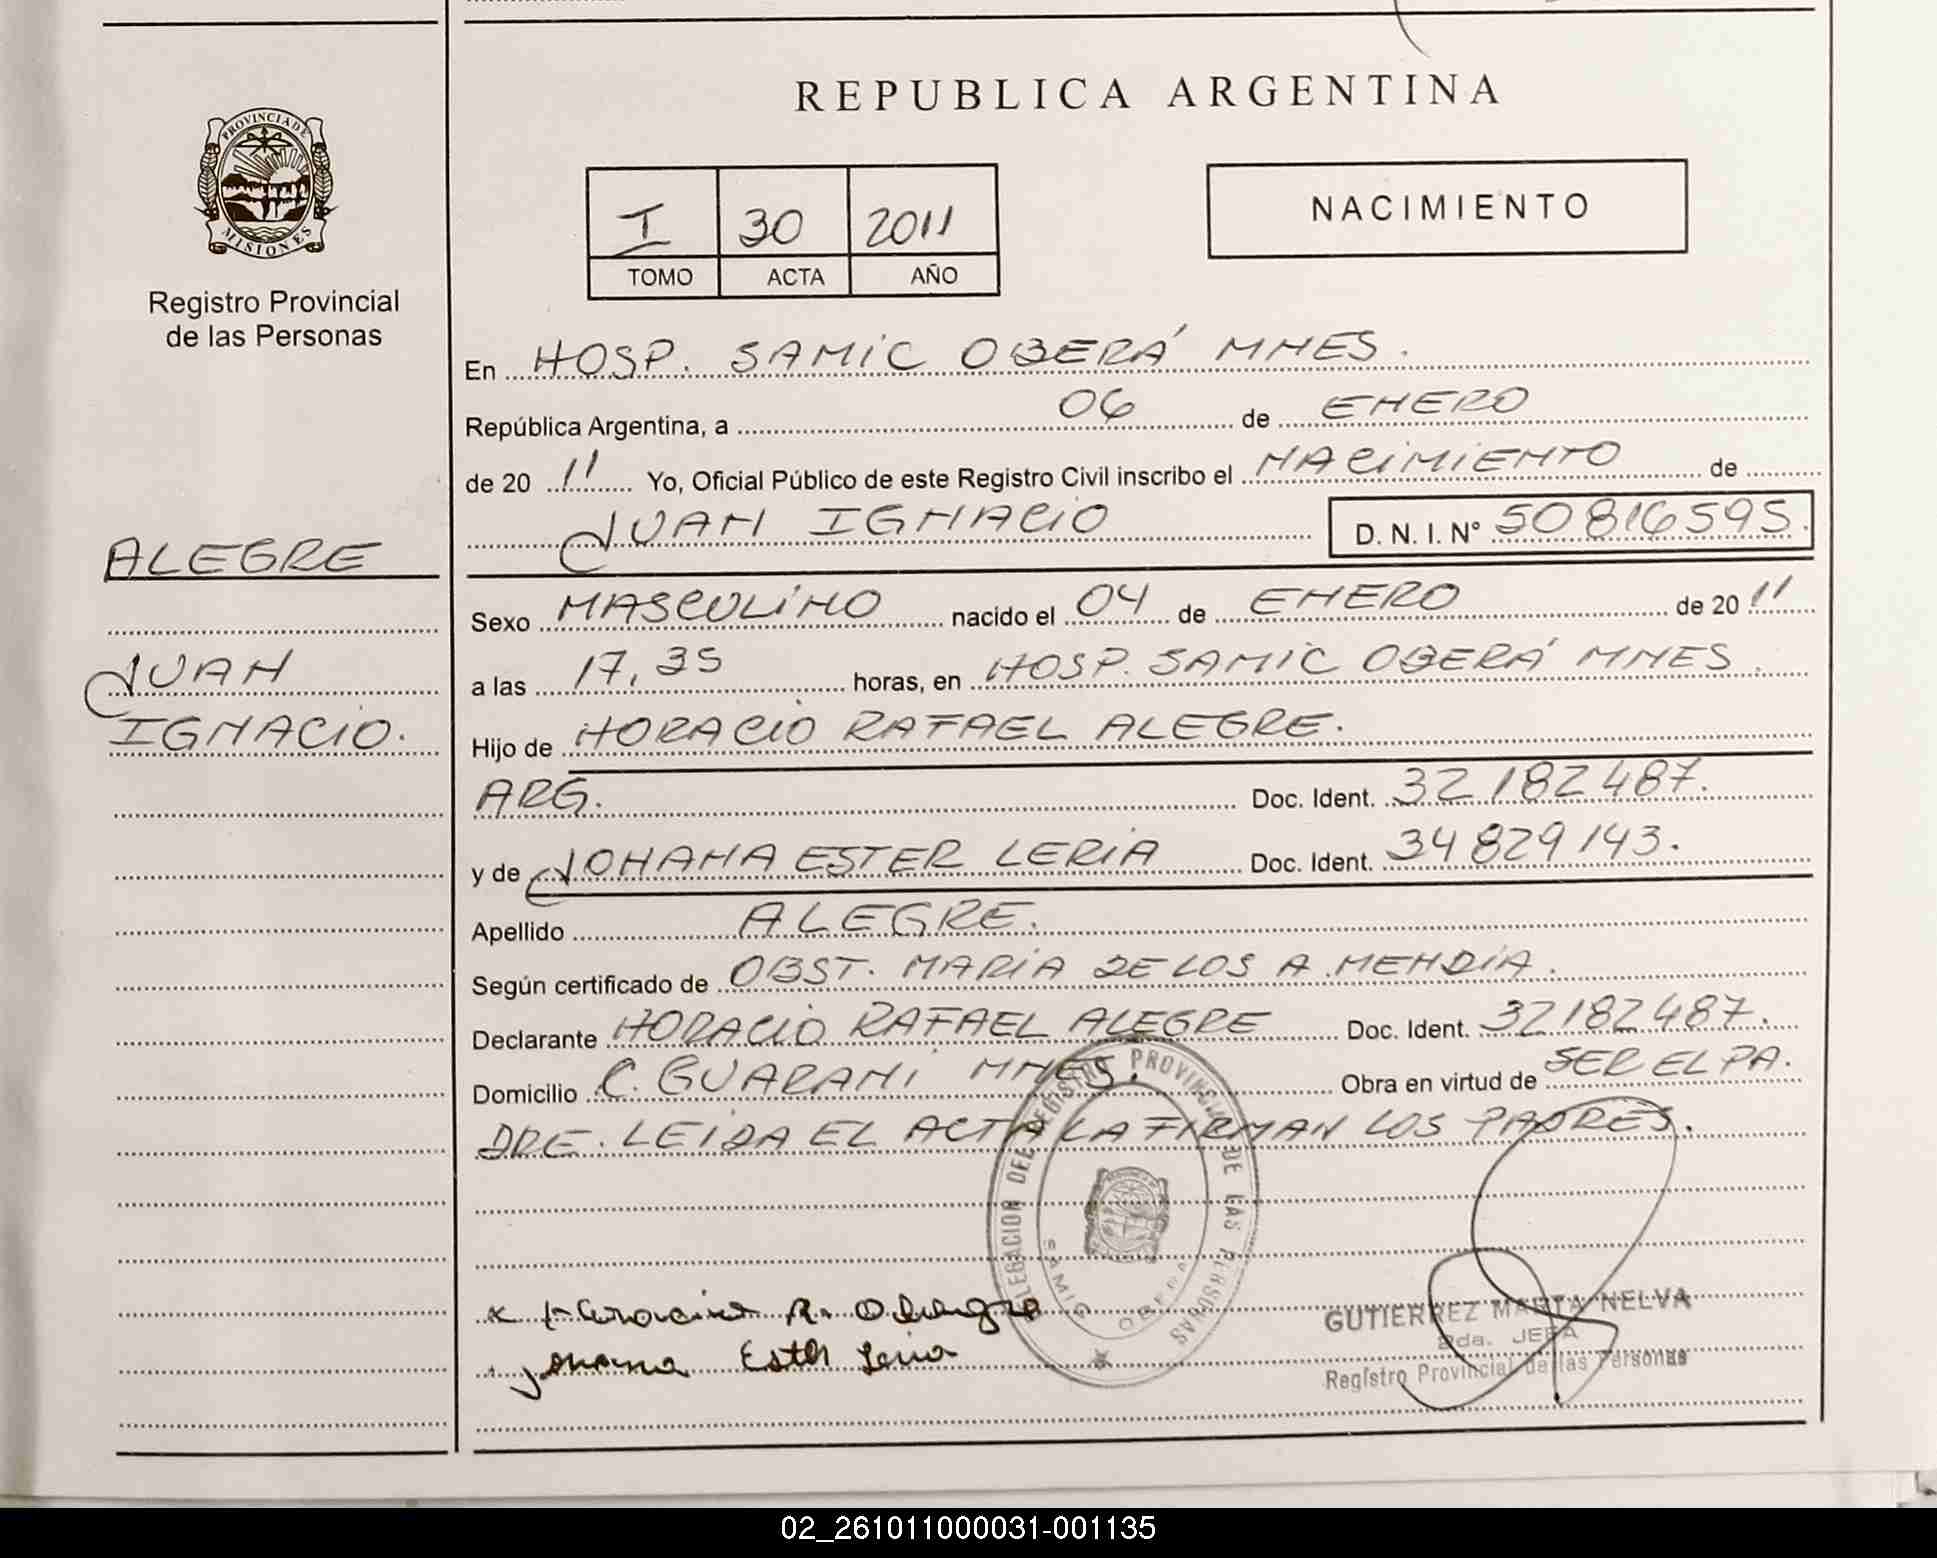 REPUBLICA ARGENTINA
PROVINCIA DE
MISIONES
Registro Provincial
de las Personas
I 30 2011
TOMO ACTA AÑO
NACIMIENTO
En HOSP. SAMIC OBERÁ MNES.
República Argentina, a 06 de ENERO
de 20 11 Yo, Oficial Público de este Registro Civil inscribo el NACIMIENTO de
JUAN IGNACIO D. N. I. Nº 50816595.
ALEGRE
JUAN
IGNACIO.
Sexo MASCULINO nacido el 04 de ENERO de 20 11
a las 17,35 horas, en HOSP. SAMIC OBERÁ MNES.
Hijo de HORACIO RAFAEL ALEGRE.
ARG. Doc. Ident. 32182487.
y de JOHANA ESTER LERIA Doc. Ident. 34829143.
Apellido ALEGRE.
Según certificado de OBST. MARIA DE LOS A. MENDIA.
Declarante HORACIO RAFAEL ALEGRE Doc. Ident. 32182487.
Domicilio C. GUARANI MNES. Obra en virtud de SER EL PA.
DRE. LEIDA EL ACTA LA FIRMAN LOS PADRES.
DELEGACION DEL REGISTRO PROVINCIAL DE LAS PERSONAS
SAMIC OBERA
x Horacio R. Alegre
Johana Esth Leria
GUTIERREZ MARTA NELVA
2da. JEFA
Registro Provincial de las Personas
02_261011000031-001135